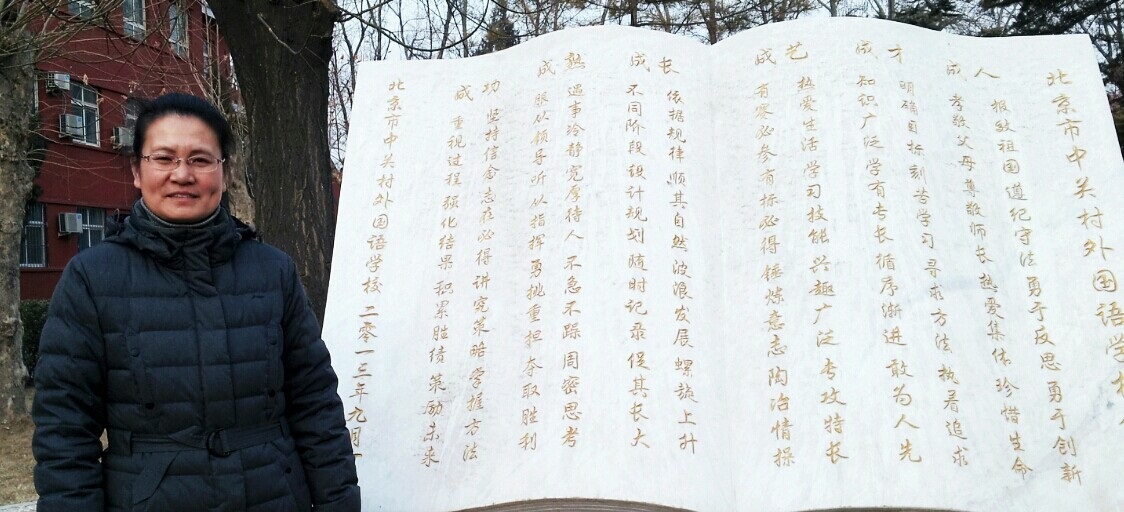 北京市中关村外国语学校
成人
报效祖国遵纪守法勇于反思勇于创新
孝敬父母尊敬师长热爱集体珍惜生命
成才
明确目标刻苦学习寻求方法执着追求
知识广泛学有专长循序渐进敢为人先
成艺
热爱生活学习技能兴趣广泛专攻特长
有赛必参有标必得锤炼意志陶冶情操
成长
依据规律顺其自然波浪发展螺旋上升
不同阶段设计规划随时记录促其长大
成熟
遇事冷静宽厚待人不急不躁周密思考
服从领导听从指挥勇挑重担夺取胜利
成功
坚持信念志在必得讲究策略掌握方法
重视过程强化结果积累胜绩策励未来
北京市中关村外国语学校 二零一三年九月